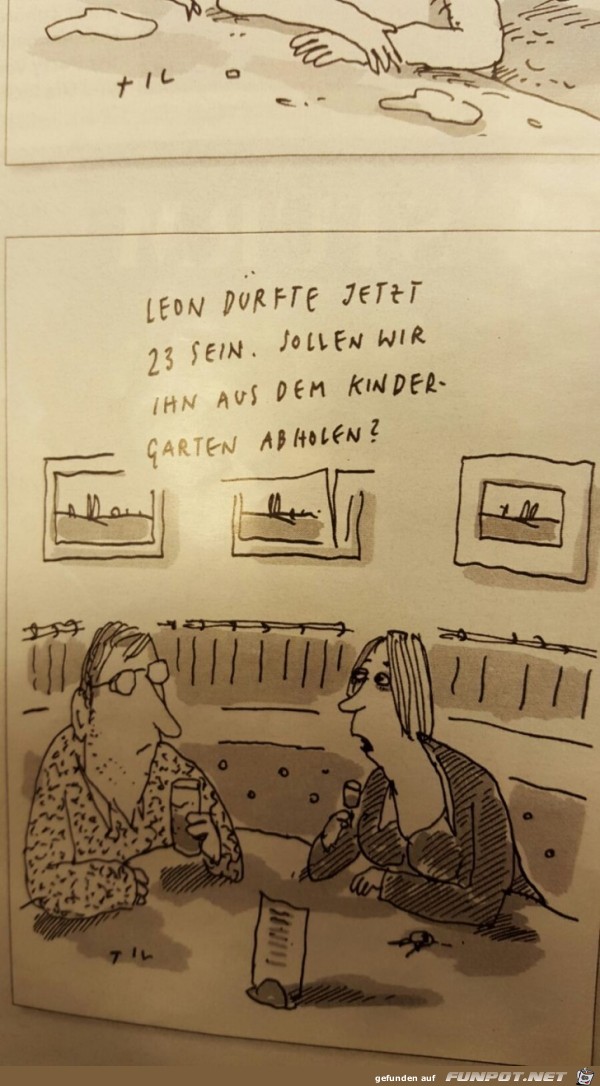 TIL
LEON DÜRFTE JETZT
23 SEIN. SOLLEN WIR
IHN AUS DEM KINDER-
GARTEN ABHOLEN?
TIL
gefunden auf FUNPOT.NET